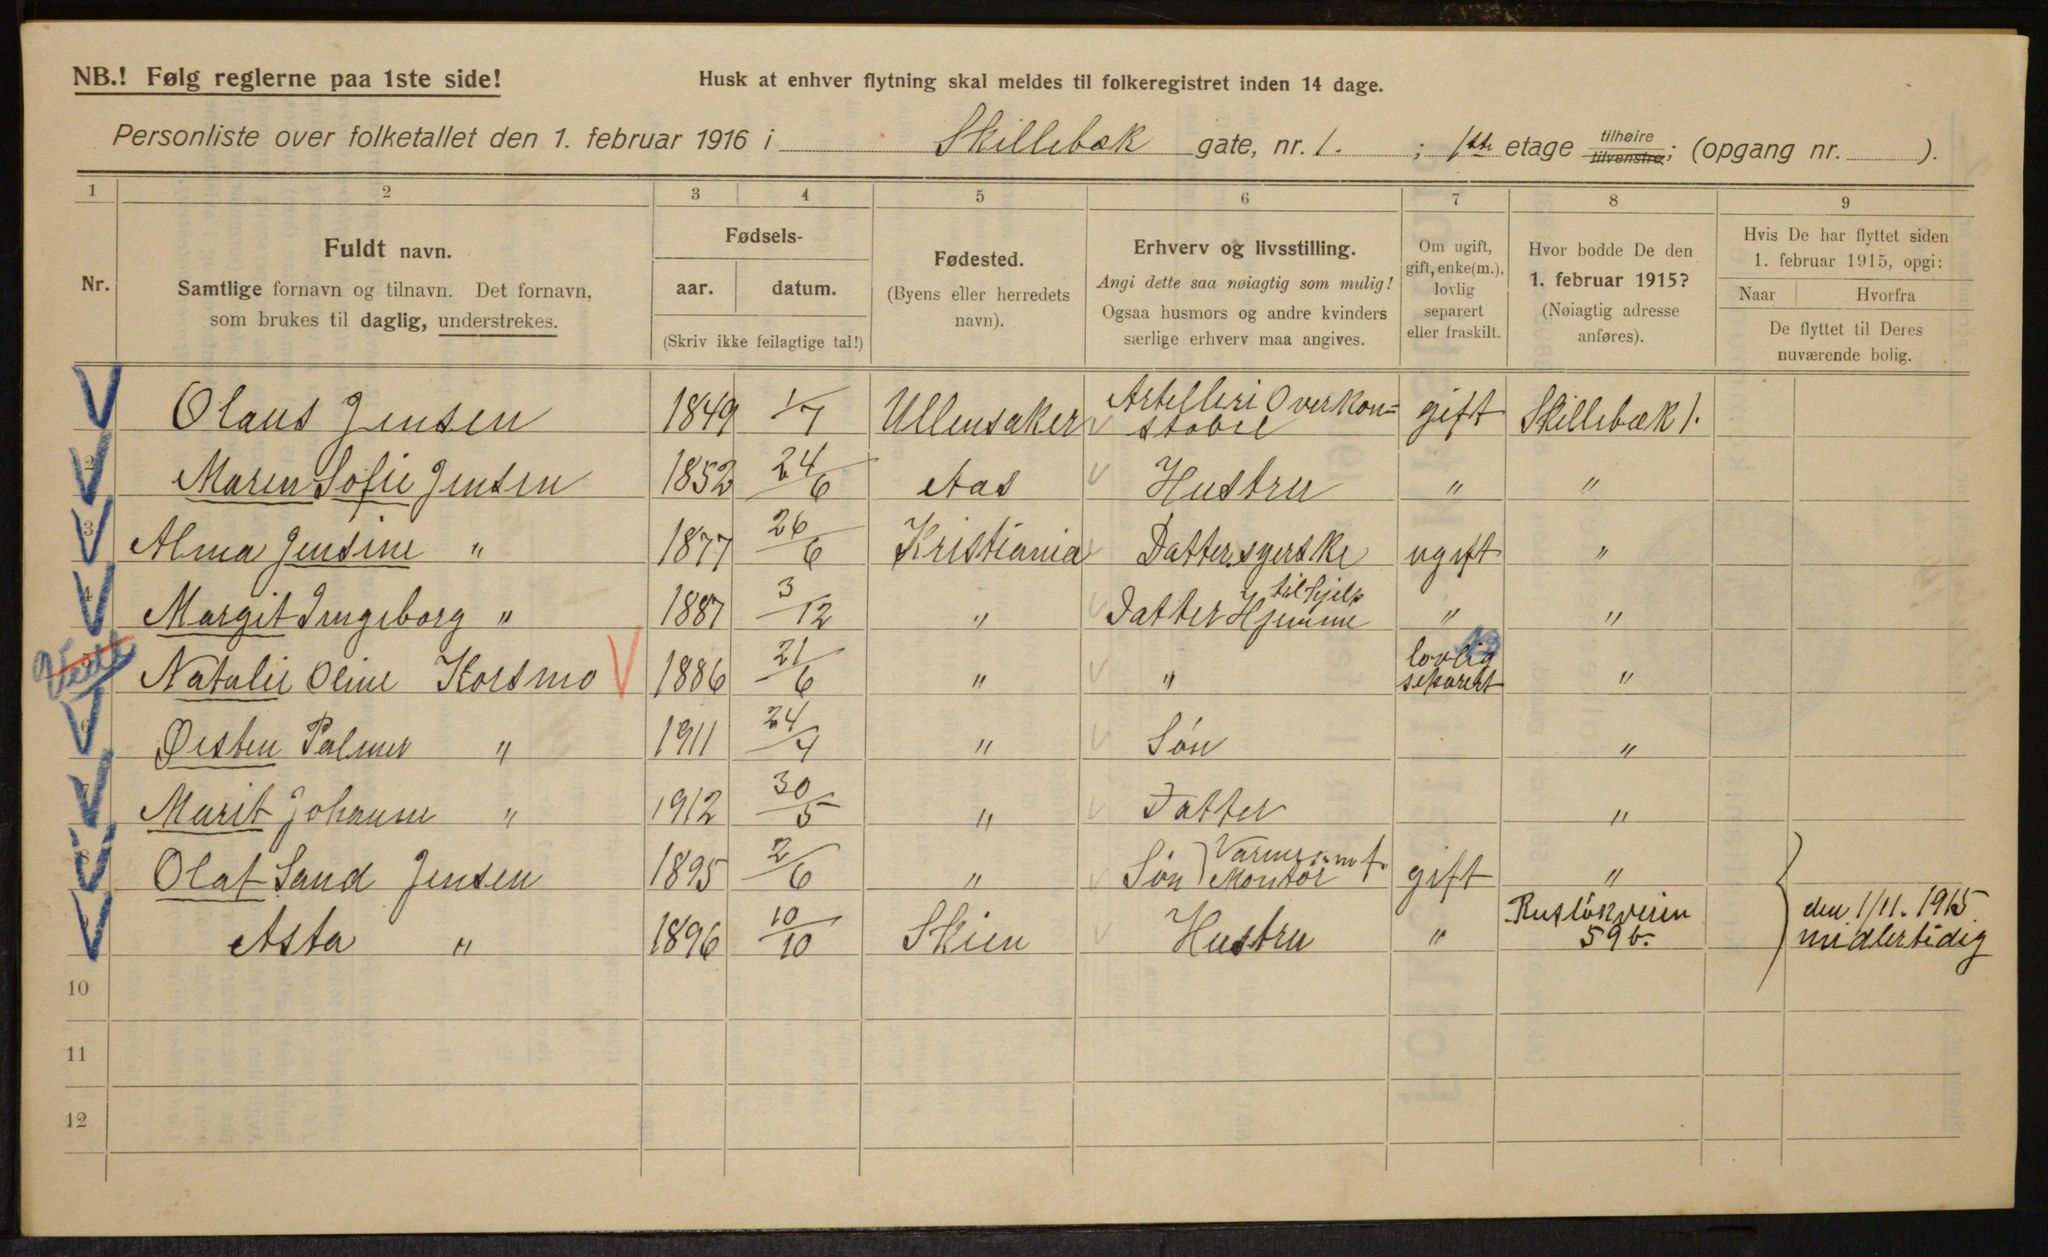 NB.! Følg reglerne paa 1ste side!
Husk at enhver flytning skal meldes til folkeregistret inden 14 dage.
Personliste over folketallet den 1. februar 1916 i Skillebæk gate, nr. 1. ; 1ste etage tilhøire tilvenstre; (opgang nr. ).
1 2 3 4 5 6 7 8 9
Nr.
Fuldt navn.
Samtlige fornavn og tilnavn. Det fornavn,
som brukes til daglig, understrekes.
Fødsels-
aar. datum.
(Skriv ikke feilagtige tal!)
Fødested.
(Byens eller herredets
navn).
Erhverv og livsstilling.
Angi dette saa nøiagtig som mulig!
Ogsaa husmors og andre kvinders
særlige erhverv maa angives.
Om ugift,
gift, enke(m.),
lovlig
separert
eller fraskilt.
Hvor bodde De den
1. februar 1915?
(Nøiagtig adresse
anføres).
Hvis De har flyttet siden
1. februar 1915, opgi:
Naar Hvorfra
De flyttet til Deres
nuværende bolig.
Olaus Jensen 1849 1/7 Ullensaker Artilleri Overkon=
stabel gift Skillebæk 1.
2 Maren Sofie Jensen 1852 24/6 Aas Hustru " "
3 Alma Jensine " 1877 26/6 Kristiania Datter syerske ugift "
4 Margit Ingeborg " 1887 3/12 " Datter til hjelp
Hjemme " "
Natalie Oline Korsmo 1886 21/6 " " lovlig
separert "
6 Øisten Palmer " 1911 24/4 " Søn "
7 Marit Johanne " 1912 30/5 " Datter "
8 Olaf Sand Jensen 1895 2/6 " Søn Montör gift "
Asta " 1896 10/10 Skien Hustru " Rusløkveien
59b. den 1/11. 1915
midlertidig
10
11
12